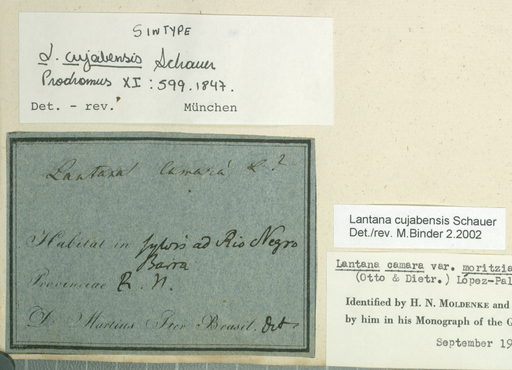 SINTYPE
L. cujabensis Schauer
Prodromus XI: 599. 1847.
Det. - rev. München
Lantana Camara L?
Habitat in sylvis ad Rio Negro
Barra
Provinciae R. N.
D. Martius Iter Brasil. Oct
Lantana cujabensis Schauer
Det./rev. M.Binder 2.2002
Lantana camara var. moritzia
(Otto & Dietr.) López-Pal
Identified by H. N. MOLDENKE and
by him in his Monograph of the G
September 19